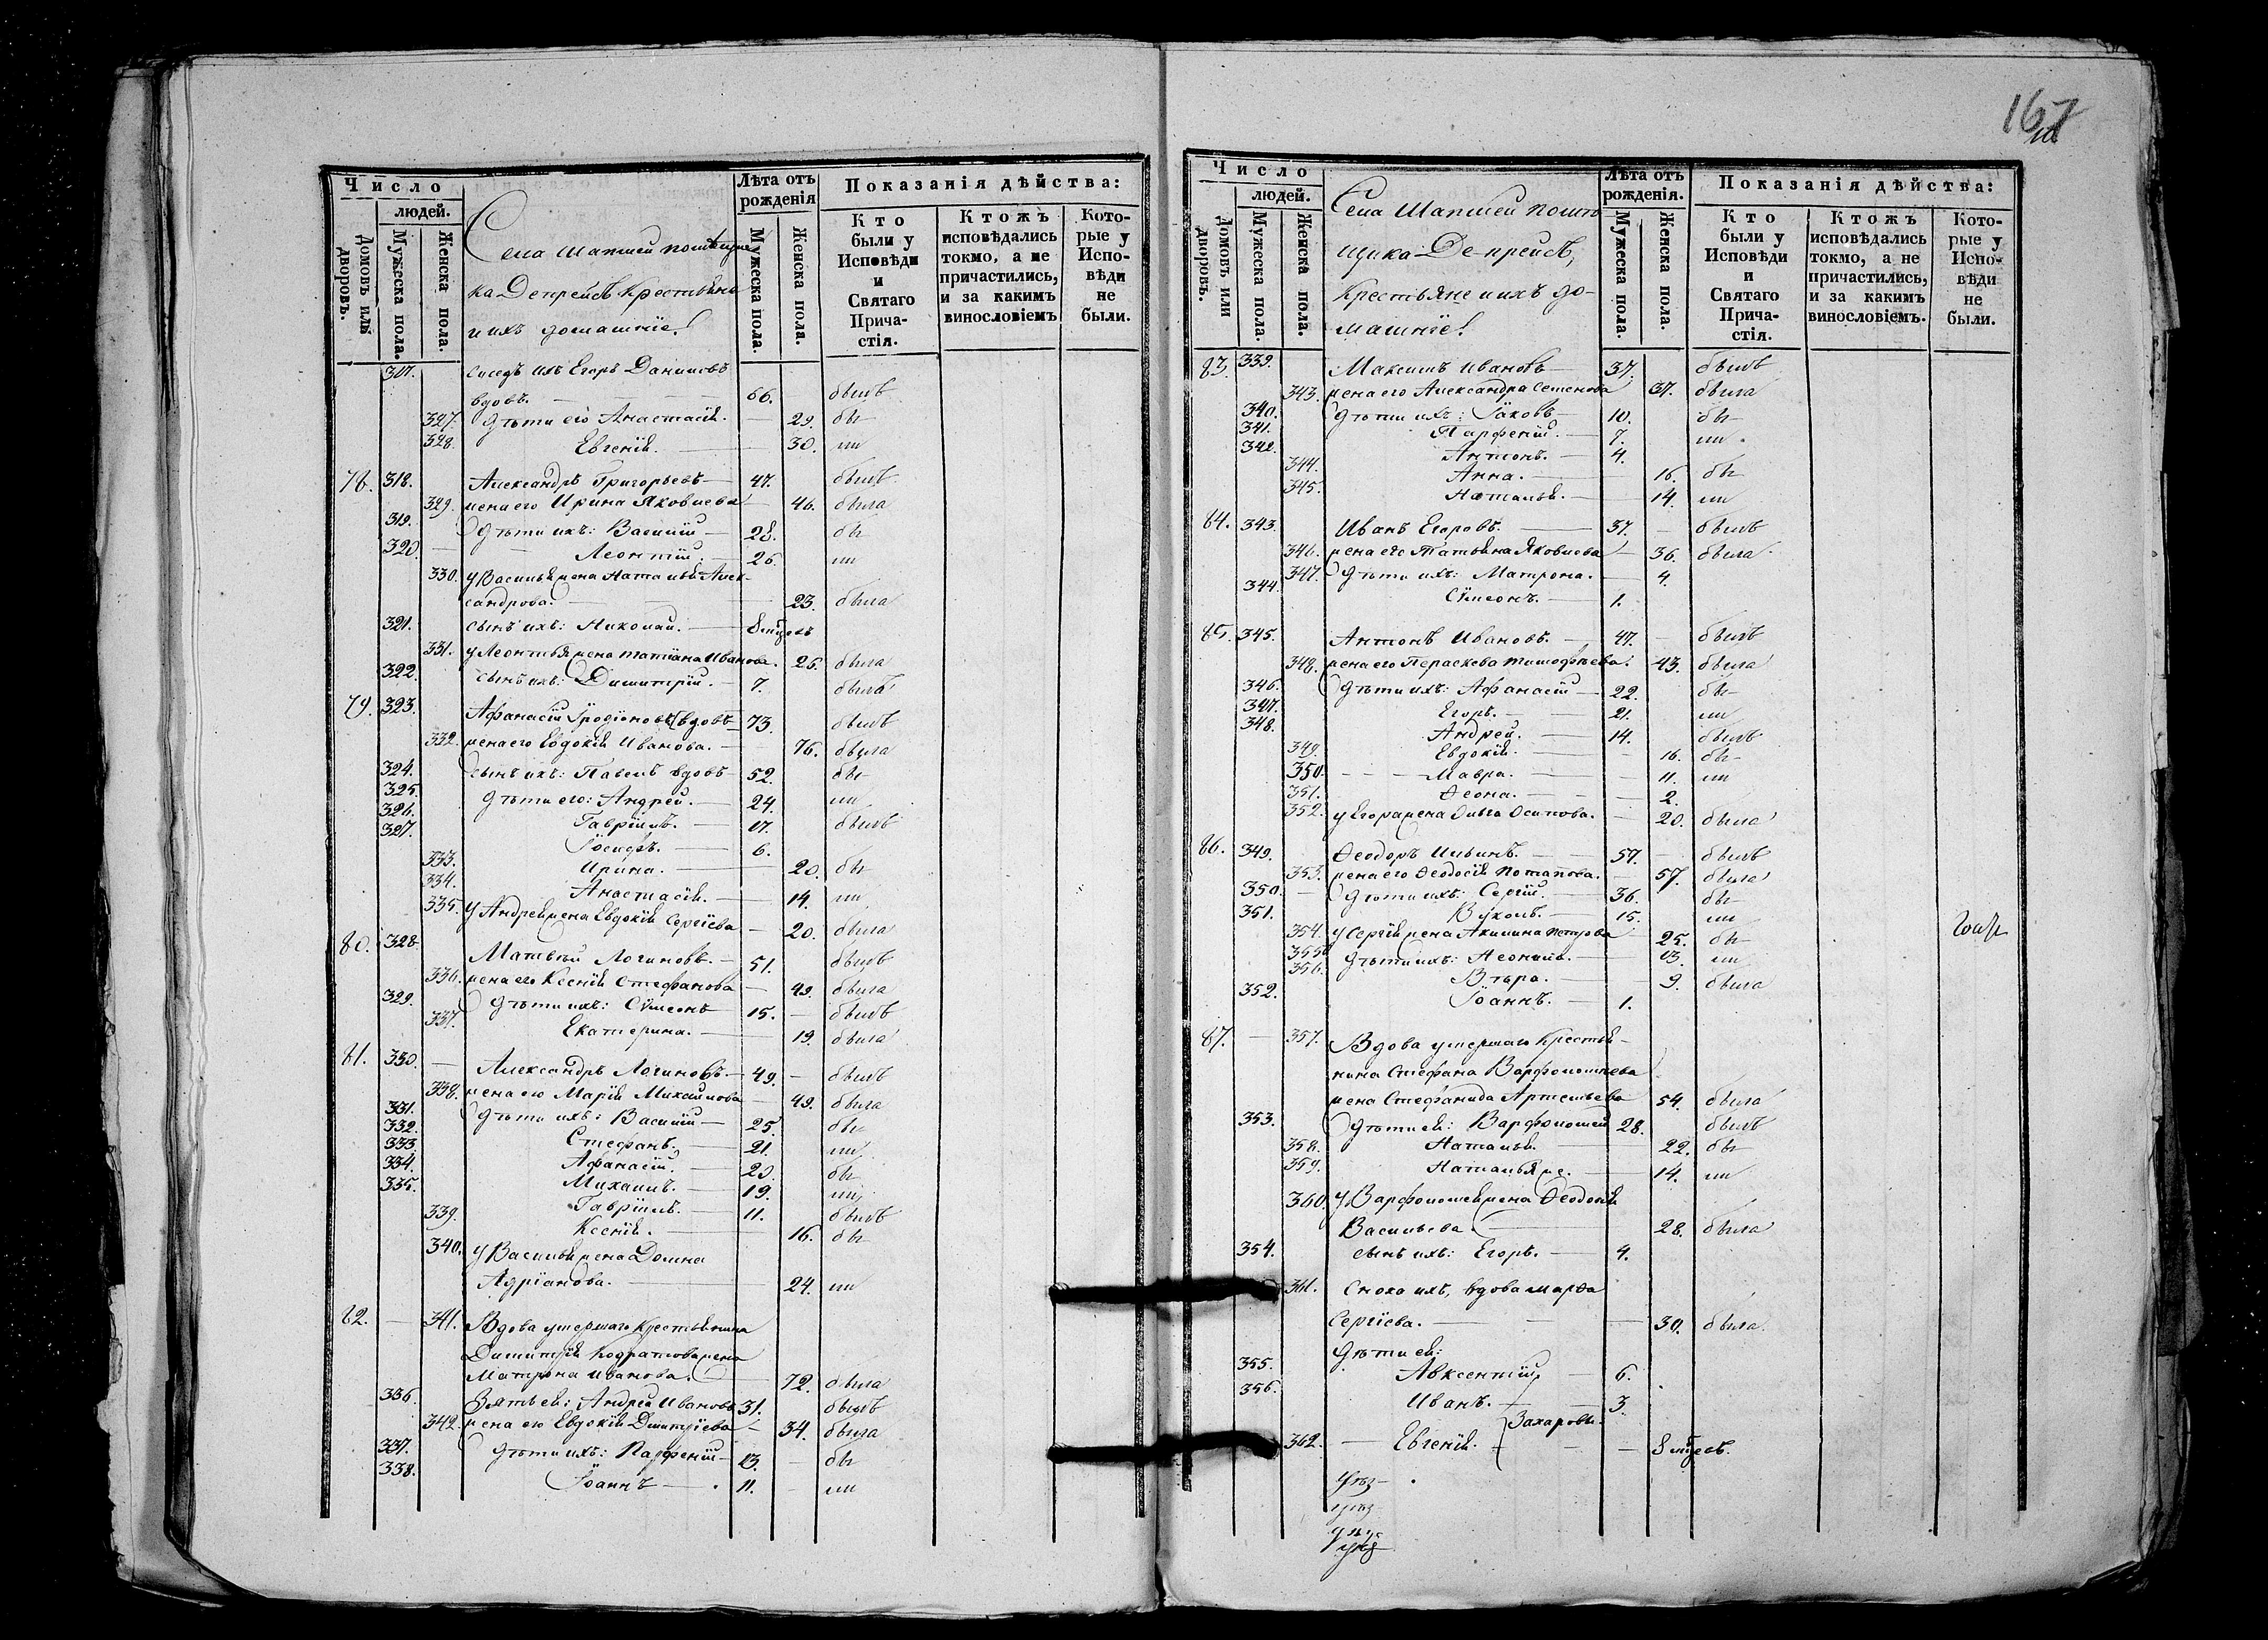 167
Число
людей.
Домовъ или дворовъ.
Мужеска пола.
Женска пола.
Села Шапшей помѣщи-
ка Депрейсъ крестьяне
и ихъ домашніе.
Лѣта отъ рожденія
Мужеска пола.
Женска пола.
Показанія дѣйства:
Кто были у Исповѣди и Святаго Причастія.
Ктожъ исповѣдались токмо, а не причастились, и за какимъ винословіемъ
Которые у Исповѣди не были.
317. сосѣдъ ихъ Егоръ Даниловъ
вдовъ. 66. былъ
327. Дѣти его Анастасія. 29. бы-
328. Евгенія. 30. ли
78. 318. Александръ Григорьевъ 47. былъ
329. жена его Ирина Яковлева 46. была
319. Дѣти ихъ: Василій 28. бы-
320. Леонтій. 26. ли
330. у Василья жена Наталья Алек-
сандрова. 23. была
321. сынъ ихъ: Николай. 8 мцовъ
331. у Леонтья жена Татіана Иванова. 26. была
322. сынъ ихъ: Димитрій. 7. былъ
79. 323. Афанасій Іродіоновъ вдовъ 73. былъ
332. жена его Евдокія Иванова. 76. была
324. сынъ ихъ: Павелъ вдовъ 52. бы-
325. дѣти его: Андрей. 24. ли
326. Гавріилъ. 17. былъ
327. Іосифъ. 6.
333. Ирина. 20. бы-
334. Анастасія. 14. ли
335. у Андрея жена Евдокія Сергіева 20. была
80. 328. Матвѣй Логиновъ. 51. былъ
336. жена его Ксенія Стефанова 49. была
329. Дѣти ихъ: Сѵмеонъ 15. былъ
337. Екатерина. 19. была
81. 330. Александръ Логиновъ. 49. былъ
338. жена его Марія Михайлова 49. была
331. Дѣти ихъ: Василій 25. бы-
332. Стефанъ. 21. ли
333. Афанасій. 20. бы-
334. Михаилъ. 19. ли
335. Гавріилъ. 11. былъ
339. Ксенія. 16. бы-
340. у Василья жена Домна
Адріанова. 24. ли
82. 341. Вдова умершаго крестьянина
Димитрія Кодратова жена
Матрона Иванова. 72. была
336. Зять ея: Андрей Ивановъ 31. былъ
342. жена его Евдокія Димитріева 34. была
337. Дѣти ихъ: Парфеній 13. бы-
338. Іоаннъ 11. ли
Число
людей.
Домовъ или дворовъ.
Мужеска пола.
Женска пола.
Села Шапшей помѣ-
щика Депрейсъ,
крестьяне и ихъ до-
машніе.
Лѣта отъ рожденія.
Мужеска пола.
Женска пола.
Показанія дѣйства:
Кто были у Исповѣди и Святаго Причастія.
Ктожъ исповѣдались токмо, а не причастились, и за какимъ винословіемъ.
Которые у Исповѣди не были.
83. 339. Максимъ Ивановъ 37. былъ
343. жена его Александра Семенова 37. была
340. Дѣти ихъ: Іаковъ 10. бы-
341. Парфеній. 7. ли
342. Антонъ. 4.
344. Анна. 16. бы-
345. Наталья. 14. ли
84. 343. Иванъ Егоровъ. 37. былъ
346. жена его Татьяна Яковлева 36. была
347. Дѣти ихъ: Матрона. 4.
344. Сѵмеонъ. 1.
85. 345. Антонъ Ивановъ. 47. былъ
348. жена его Параскева Тимофѣева. 43. была
346. Дѣти ихъ: Афанасій 22. бы-
347. Егоръ. 21. ли
348. Андрей. 14. былъ
349. Евдокія. 16. бы-
350. Мавра. 11. ли
351. Ѳеона. 2.
352. у Егора жена Ольга Осипова. 20. была
86. 349. Ѳеодоръ Ильинъ. 57. былъ
353. жена его Ѳеодосія Потапова. 57. была
350. Дѣти ихъ: Сергій. 36. бы-
351. Вуколъ. 15. ли
354. у Сергія жена Акилина Петрова 25. бы-
355. дѣти ихъ: Неонила. 13. ли
356. Вѣра. 9. была
352. Іоаннъ. 1.
87. 357. Вдова умершаго крестья-
нина Стефана Варфоломеева
жена Стефанида Артемьева 54. была
353. Дѣти ея: Варфоломей 28. былъ
358. Наталья. 22. бы-
359. Наталья же. 14. ли
360. у Варфоломея жена Ѳеодосія
Васильева. 28. была
354. сынъ ихъ: Егоръ. 4.
361. Сноха ихъ, вдова Марѳа
Сергіева. 30. была.
Дѣти ея:
355. Авксентій 6.
356. Иванъ. 3.
Захаровы.
362. Евгенія. 8 мцовъ.